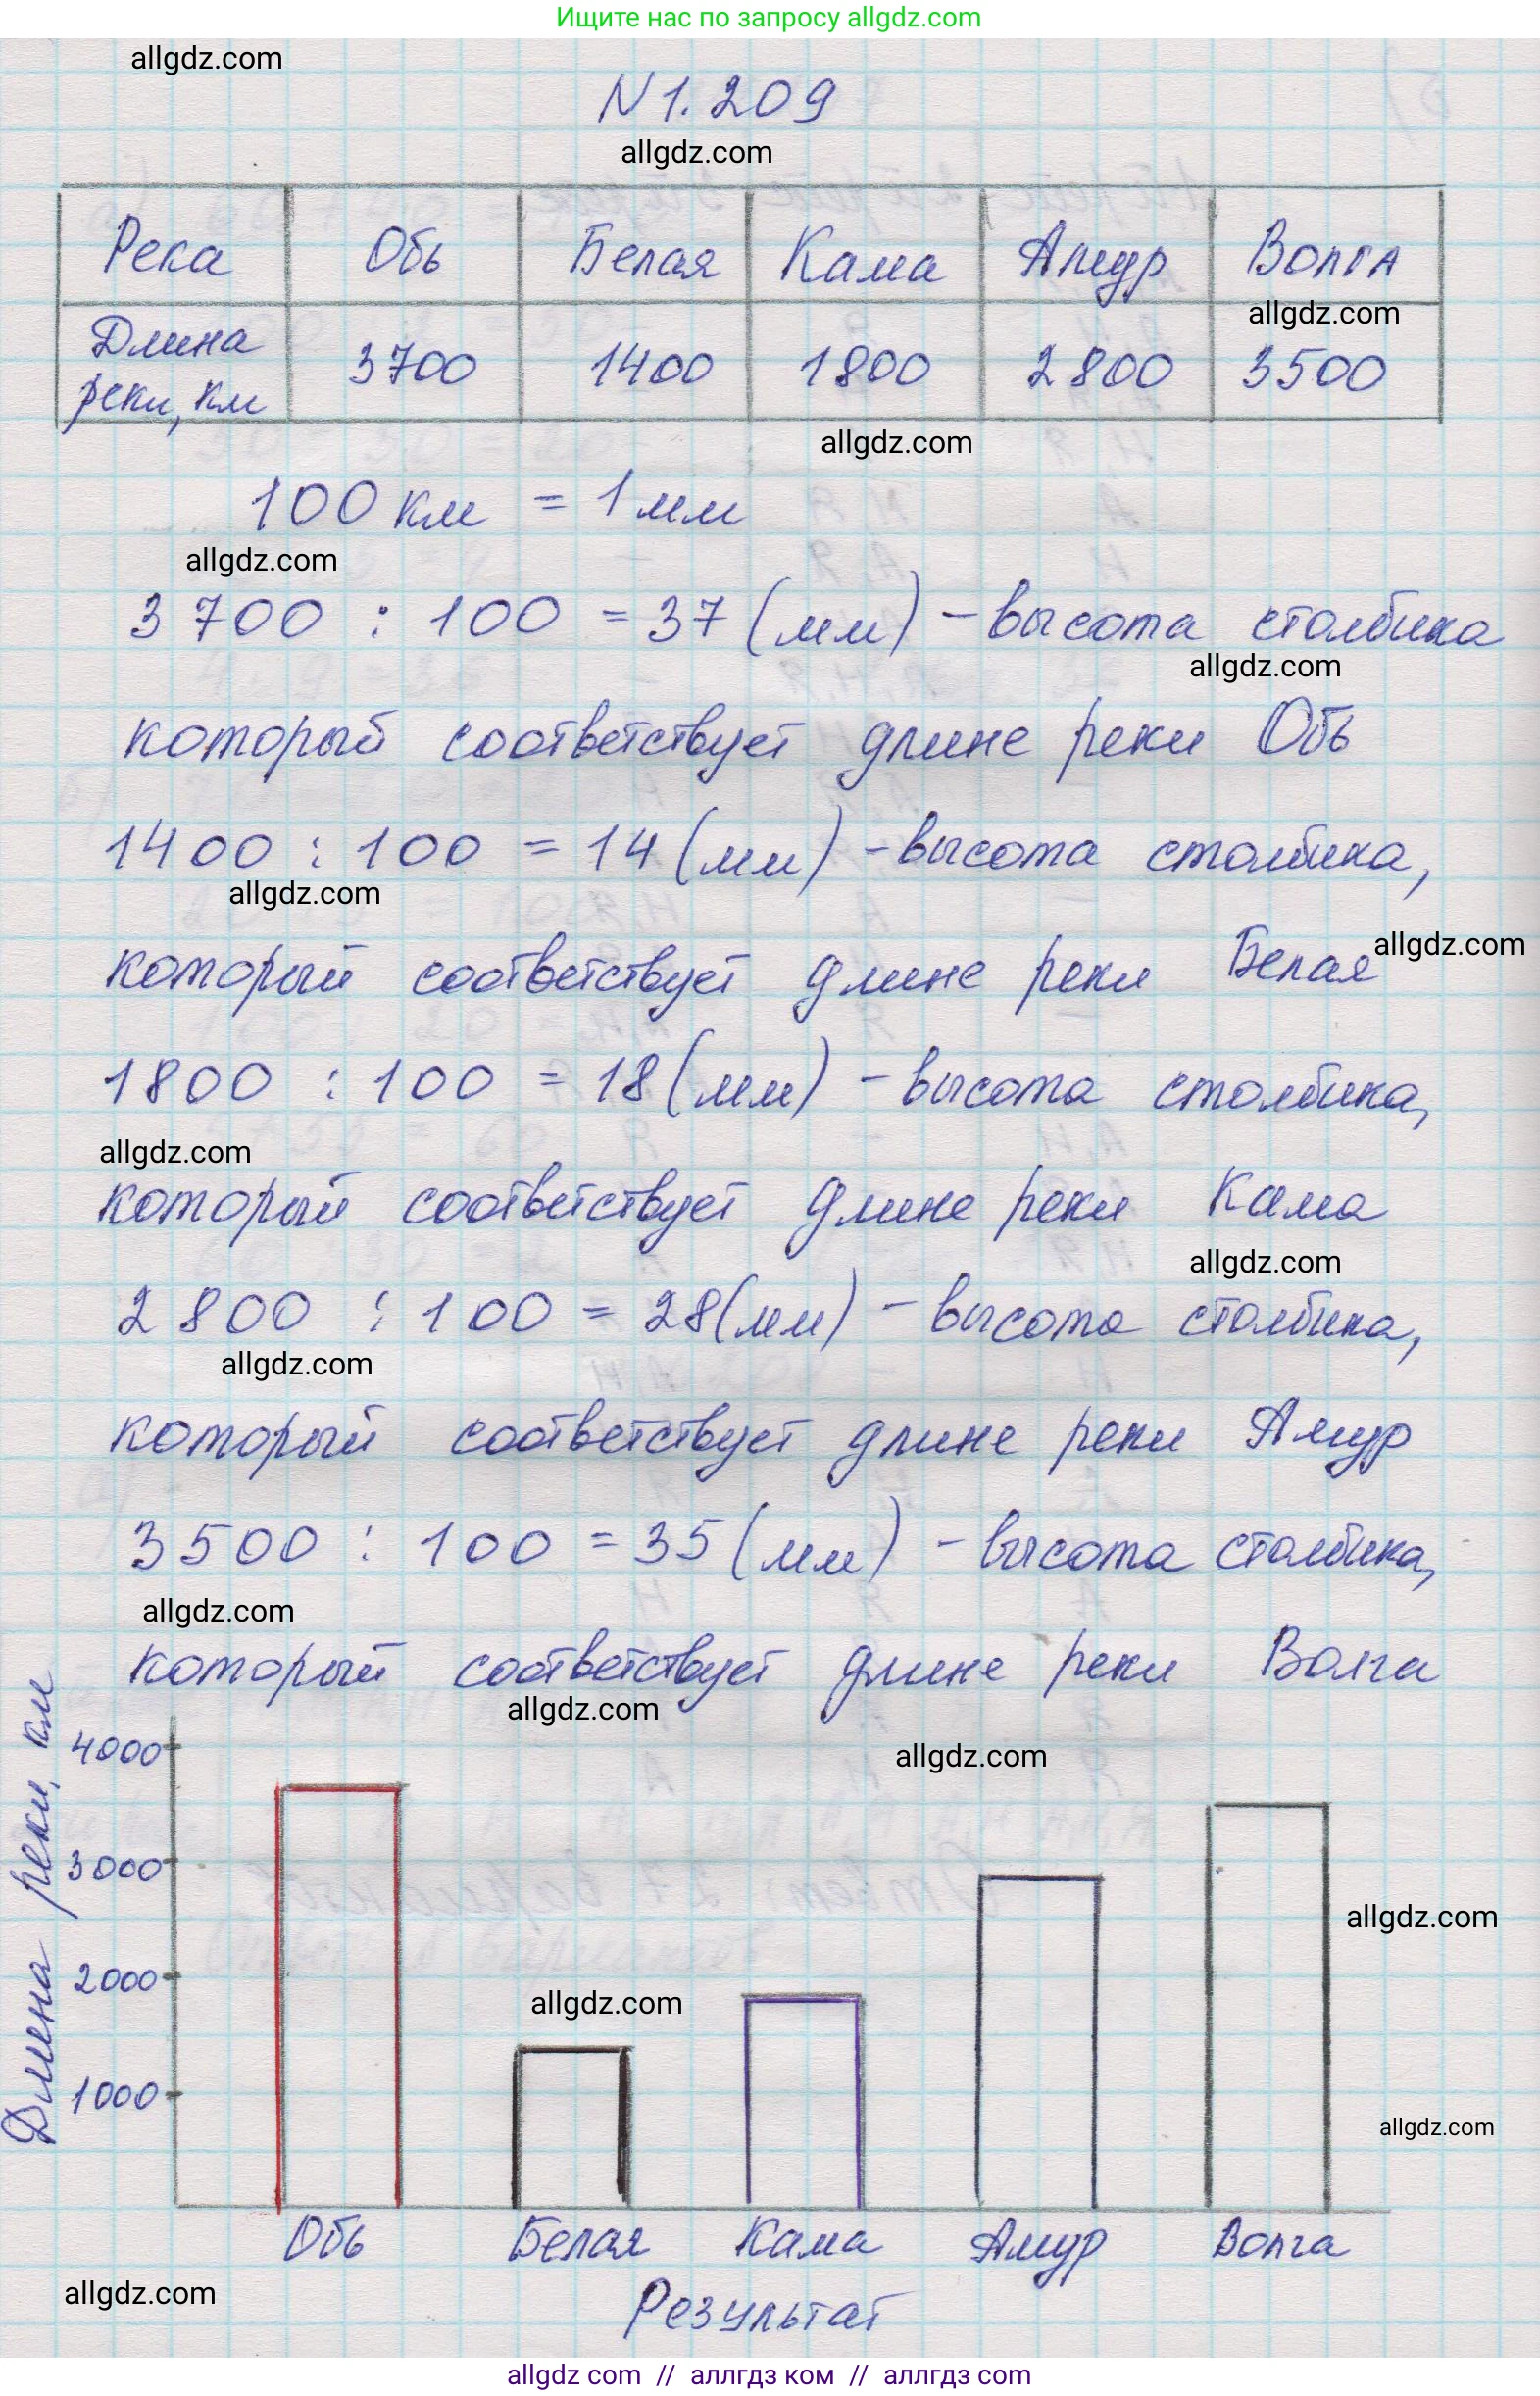 Ищите нас по запросу allgdz.com
allgdz.com
N 1.209
allgdz.com
Река Обь Белая Кама Амур Волга
allgdz.com
Длина реки, км 3700 1400 1800 2800 3500
allgdz.com
100 км = 1 мм
allgdz.com
3700 : 100 = 37 (мм) - высота столбика
allgdz.com
который соответствует длине реки Обь
1400 : 100 = 14 (мм) - высота столбика,
allgdz.com
allgdz.com
который соответствует длине реки Белая
1800 : 100 = 18 (мм) - высота столбика,
allgdz.com
который соответствует длине реки Кама
allgdz.com
2800 : 100 = 28 (мм) - высота столбика,
allgdz.com
который соответствует длине реки Амур
3500 : 100 = 35 (мм) - высота столбика,
allgdz.com
который соответствует длине реки Волга
allgdz.com
allgdz.com
Длина реки, км
4000
3000
allgdz.com
2000
allgdz.com
1000
allgdz.com
Обь Белая Кама Амур Волга
allgdz.com
Результат
allgdz.com // аллгдз ком // аллгдз com